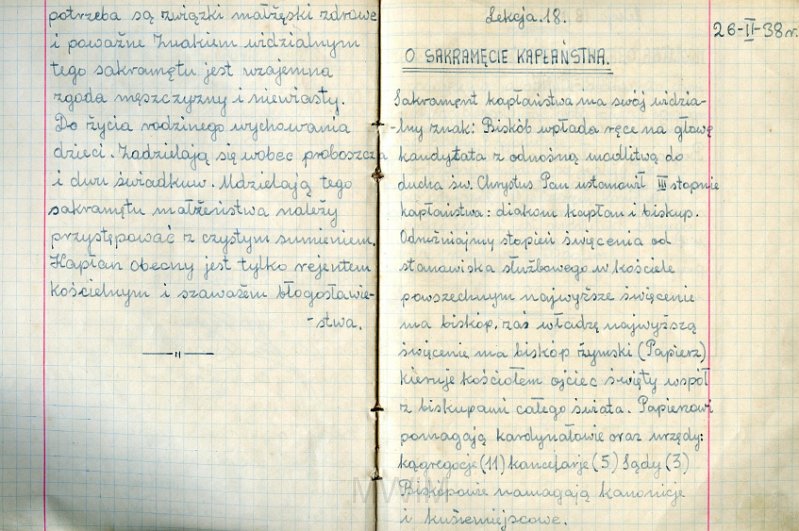 potrzeba są związki małżęski zdrowe
i poważne Znakiem widzialnym
tego sakramętu jest wzajemna
zgoda męszczyzny i niewiasty.
Do życia rodzinego wychowania
dzieci. Zadzielają się wobec proboszcza
i dwu świadkuw. Udzielają tego
sakramętu małżeństwa należy
przystępować z czystym sumieniem.
Kapłan obecny jest tylko rejentem
kościelnym i szaważem błogosławie-
-stwa.
Lekcja 18.
26-II-38 r.
O SAKRAMĘCIE KAPŁAŃSTWA.
Sakrament kapłaństwa ma swój widzia-
lny znak: Biskób wpłada ręce na głowę
kandytata z odnośną modlitwą do
ducha św. Chrystus Pan ustanowił III stopnie
kapłaństwa: diakon kapłan i biskup.
Odrużniajmy stopień święcenia od
stanawiska służbowego w kościele
powszechnym najwyższe święcenie
ma biskóp, zaś władzę najwyższą
święcenie ma biskóp rzymski (Papierz)
kieruje kościołem ojciec święty wspól
z biskupami całego świata. Papierzowi
pomagają kardynałowie oraz urzędy:
kągregocje (11) kancelarje (5) Sądy (3)
Biskópowie wamagają kanonicje
i